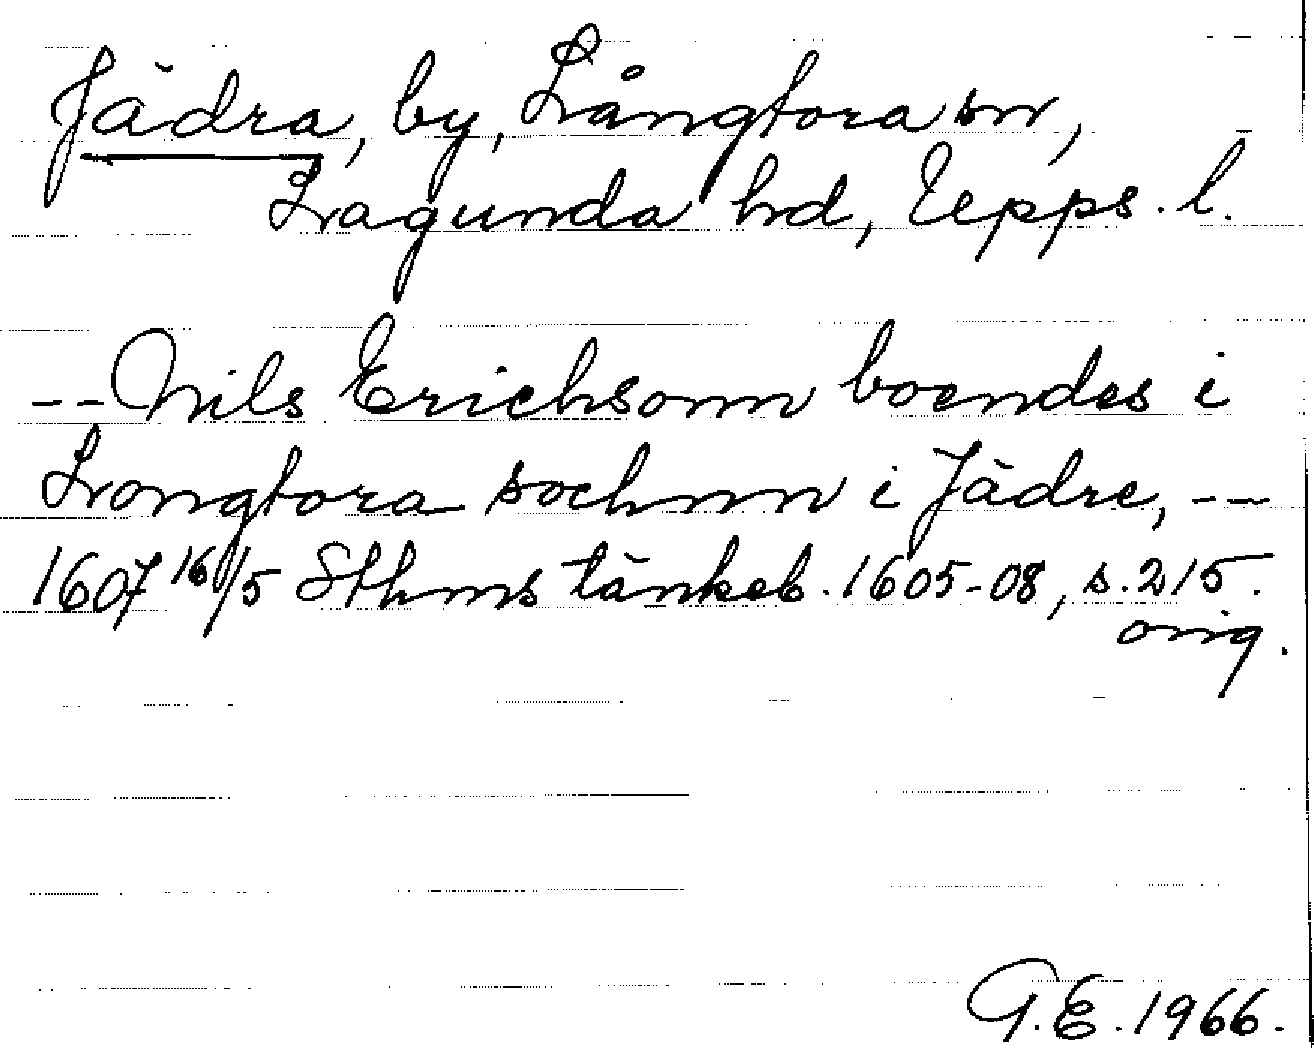 Jädra, by, Långtora sn,
Lagunda hd, Upps. l.
-- Nils Erichsonn boendes i
Longtora sochnn i Jädre, --
1607 16/5 Sthms tänkeb. 1605-08, s. 215.
orig.
G.E. 1966.